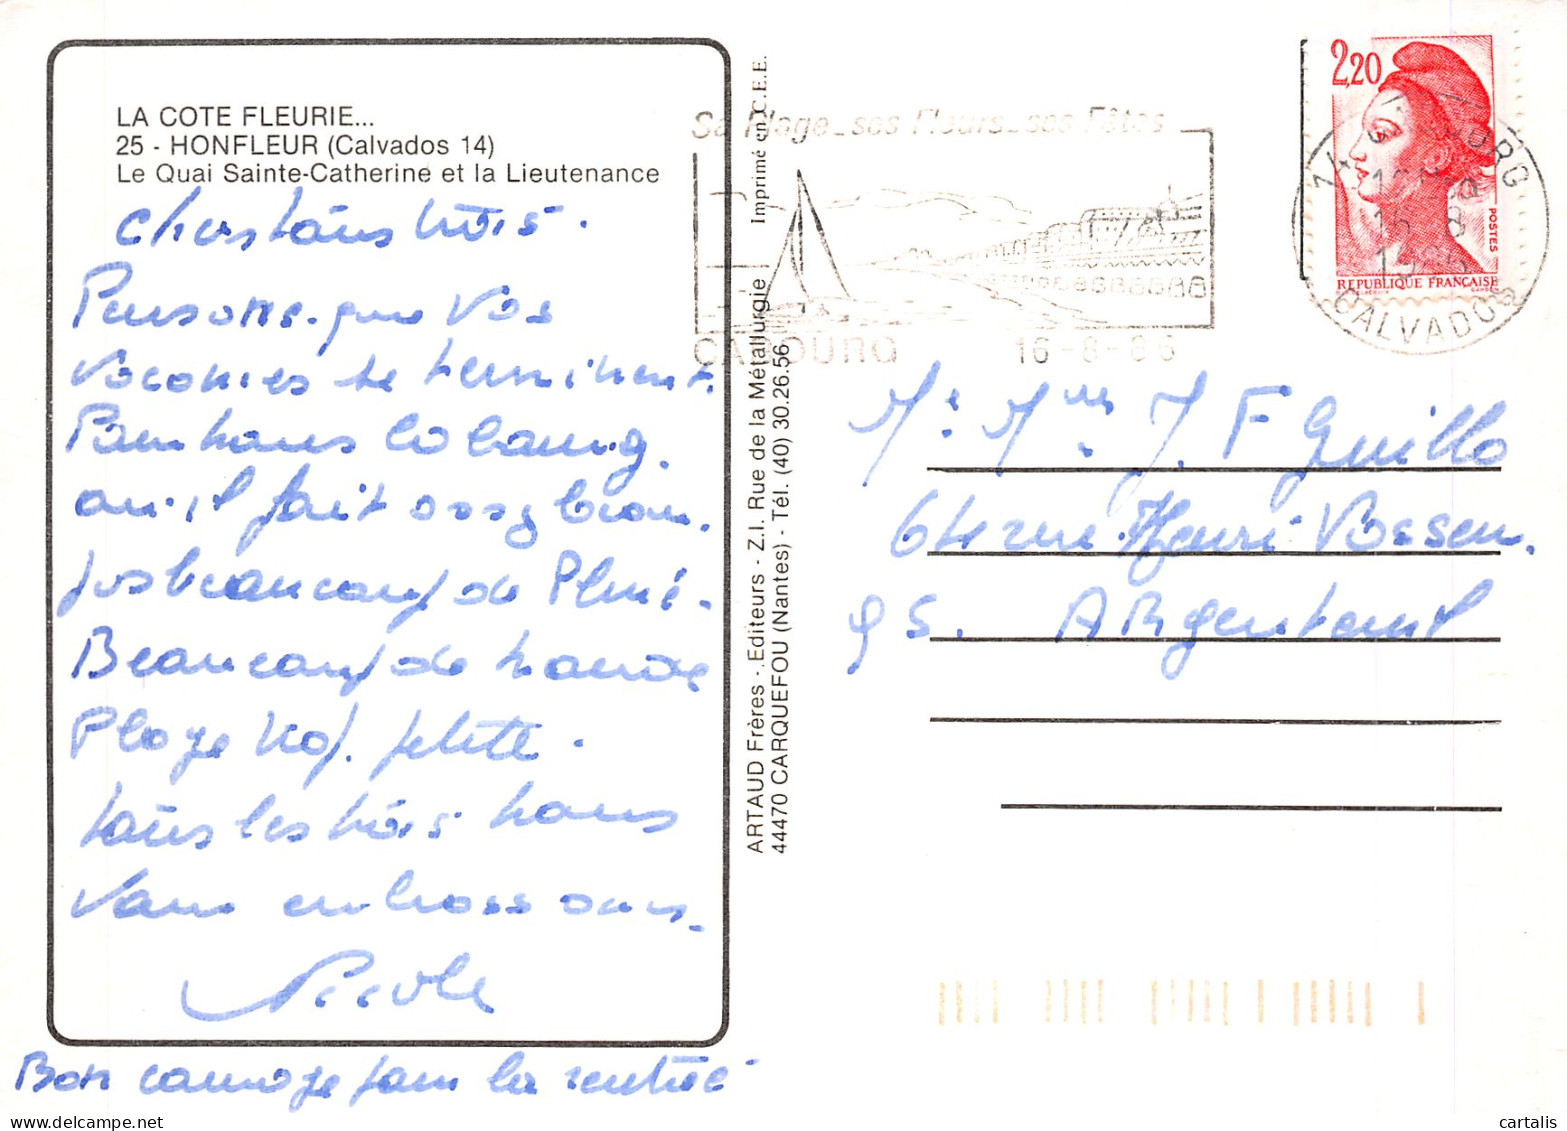 LA COTE FLEURIE...
25 - HONFLEUR (Calvados 14)
Le Quai Sainte-Catherine et la Lieutenance
Chers tous trois.
Pensons que vos
vacances se terminent.
Pour nous Cabourg.
où il fait assez beau.
pas beaucoup de Pluie.
Beaucoup de monde
Plage trop petite.
tous les trois nous
vous embrassons.
Nicole
Bon courage pour la rentrée
ARTAUD Frères - Editeurs - Z.I. Rue de la Métallurgie Imprimé en C.E.E.
44470 CARQUEFOU (Nantes) - Tél. (40) 30.26.56
Sa Plage _ ses Fleurs _ ses Fêtes
CABOURG 16-8-86
2,20
POSTES
REPUBLIQUE FRANÇAISE
14 CABOURG
16 - 8
CALVADOS
Mr Mme J. F Guillo
64 rue Henri
95. ARgenteuil